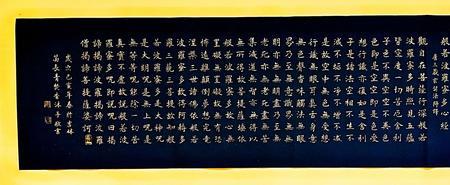 般若波羅蜜多心經
觀自在菩薩行深般若
波羅蜜多時照見五蘊
皆空度一切苦厄舍利
子色不異空空不異色
色即是空空即是色受
想行識亦復如是舍利
子是諸法空相不生不
滅不垢不淨不增不減
是故空中無色無受想
行識無眼耳鼻舌身意
無色聲香味觸法無眼
界乃至無意識界無無
明亦無無明盡乃至無
老死亦無老死盡無苦
集滅道無智亦無得以
無所得故菩提薩埵依
般若波羅蜜多故心無
罣礙無罣礙故無有恐
怖遠離顛倒夢想究竟
涅槃三世諸佛依般若
波羅蜜多故得阿耨多
羅三藐三菩提故知般
若波羅蜜多是大神咒
是大明咒是無上咒是
無等等咒能除一切苦
真實不虛故說般若波
羅蜜多咒即說咒曰揭
諦揭諦波羅揭諦波羅
僧揭諦菩提薩婆訶
歲次己亥年春於吉林